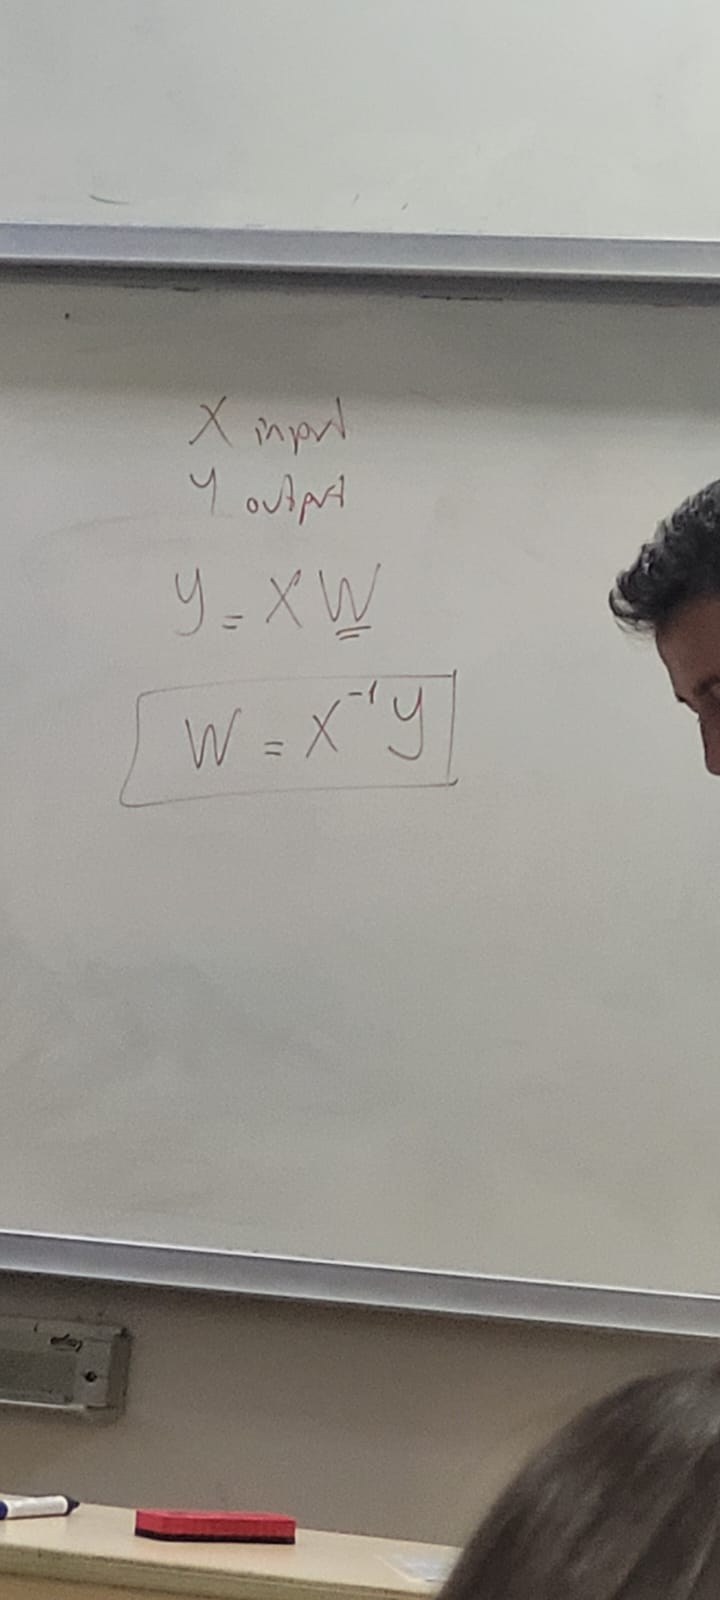 X input
Y output
y = X W
W = X⁻¹ y